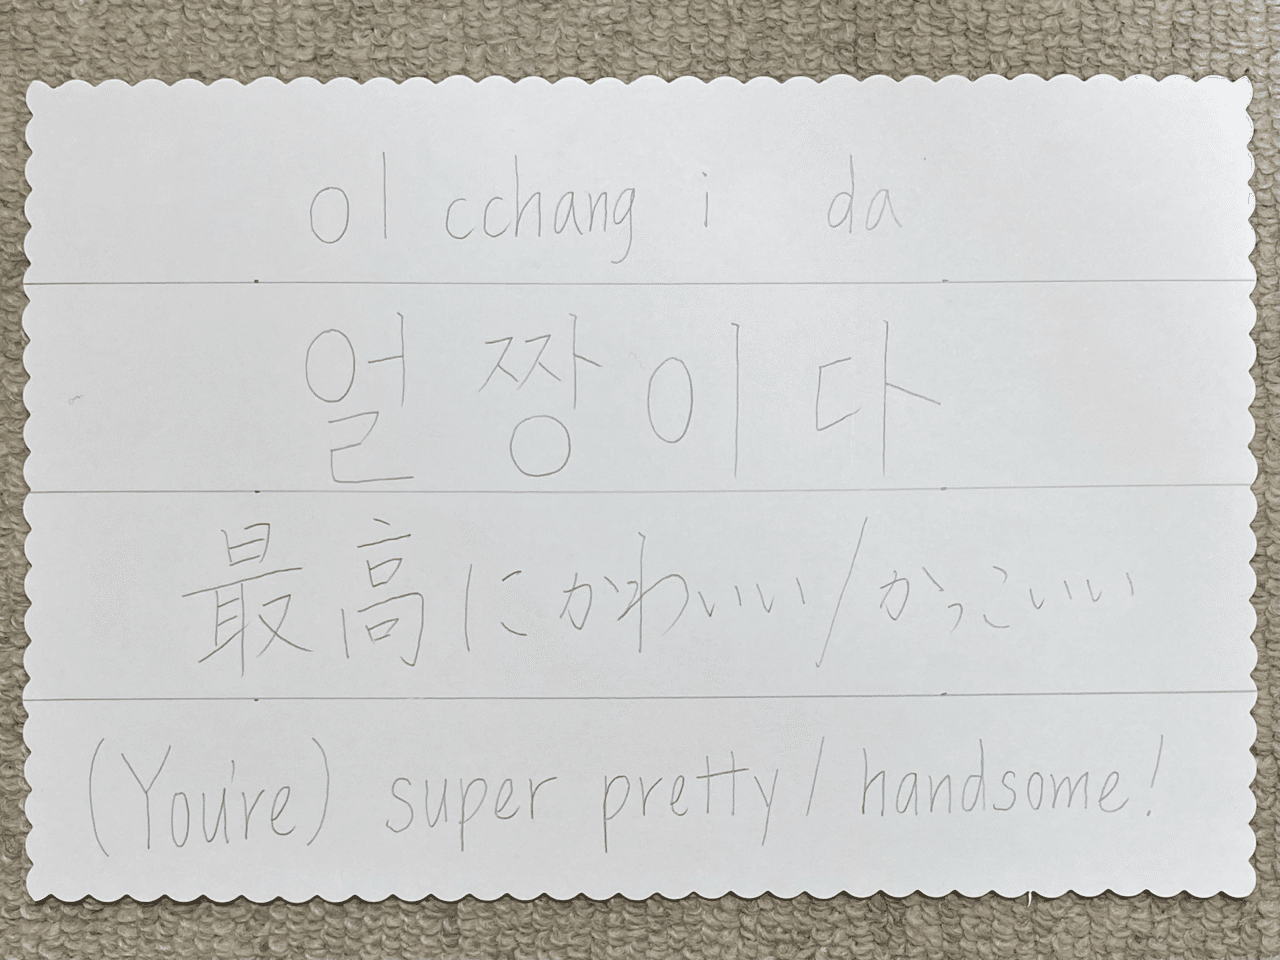 ol cchang i da
얼짱이다
最高にかわいい/かっこいい
(You're) super pretty/handsome!